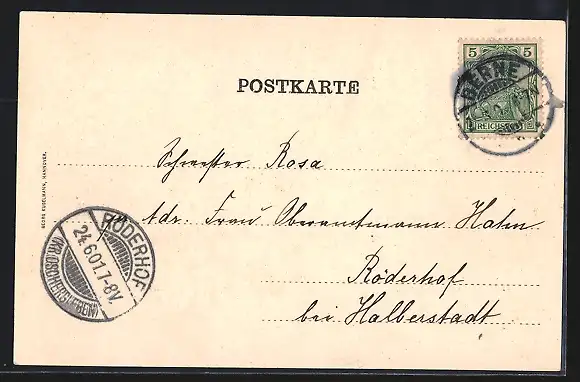 5 5
BERNE
REICHSPOST
POSTKARTE
GEORG KUGELMANN, HANNOVER.
Schwester Rosa
Adr. Frau Oberamtmann Hahn
Röderhof
bei Halberstadt
RÖDERHOF
24.6.01.7-8V.